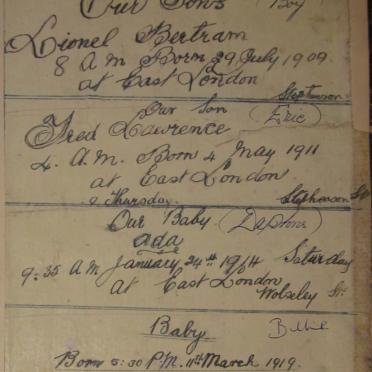 Our Sons (Boy)
Lionel Bertram
8 A.M. Born 29 July 1909.
at East London
Stephenson
Our Son (Eric)
Fred Lawrence
4. A.M. Born 4 May 1911
at East London.
Thursday. Stephenson St
Our Baby (Daphne)
ada
9:35 A.M. January 24th 1914 Saturday
At East London
Wolseley St.
Baby Billie
Born 5:30 P.M. 11th March 1919.